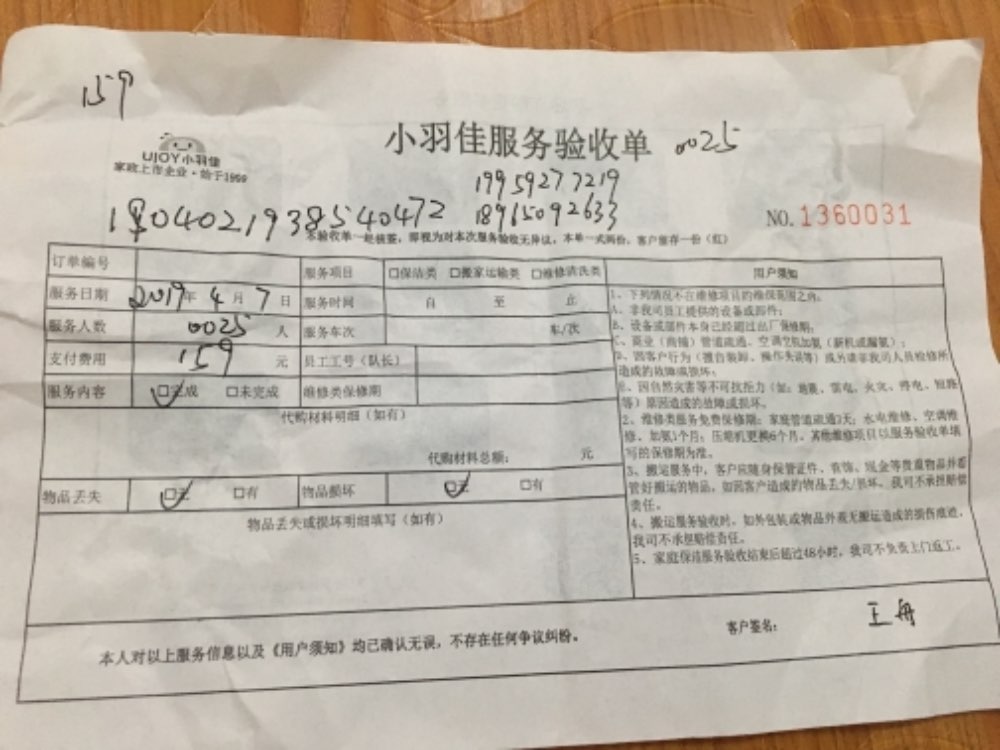 159
UJOY小羽佳
家政上市企业·始于1999
小羽佳服务验收单 0025
19959277219
18965092633
190402193854 0472
NO.1360031
本验收单一经核签,即视为对本次服务验收无异议,本单一式两份,客户留存一份(红)
订单编号 服务项目 □保洁类 □搬家运输类 □维修清洗类
服务日期 2019年 4月 7日 服务时间 自 至 止
服务人数 0025 人 服务车次 车/次
支付费用 159 元 员工工号(队长)
服务内容 □完成 □未完成 维修类保修期
代购材料明细(如有)
代购材料总额: 元
物品丢失 □无 □有 物品损坏 □无 □有
物品丢失或损坏明细填写(如有)
用户须知
1、下列情况不在维修项目的维保范围之内:
A、非我司员工提供的设备或部件;
B、设备或部件本身已经超过出厂保修期;
C、商业(商铺)管道疏通、空调加氨(新机或漏氟);
D、因客户行为(擅自装卸、操作失误等)或另请非我司人员检修所
造成的故障或损坏;
E、因自然灾害等不可抗拒力(如:地震、雷电、火灾、停电、短路
等)原因造成的故障或损坏。
2、维修类服务免费保修期:家庭管道疏通7天;水电维修、空调维
修、加氨1个月;压缩机更换6个月。其他维修项目以服务验收单填
写的保修期为准。
3、搬运服务中,客户应随身保管证件、首饰、现金等贵重物品并看
管好搬运的物品,如因客户造成的物品丢失/损坏,我司不承担赔偿
责任。
4、搬运服务验收时,如外包装或物品外观无搬运造成的损伤痕迹,
我司不承担赔偿责任。
5、家庭保洁服务验收结束后超过48小时,我司不负责上门返工。
本人对以上服务信息以及《用户须知》均已确认无误,不存在任何争议纠纷。
客户签名: 王舟